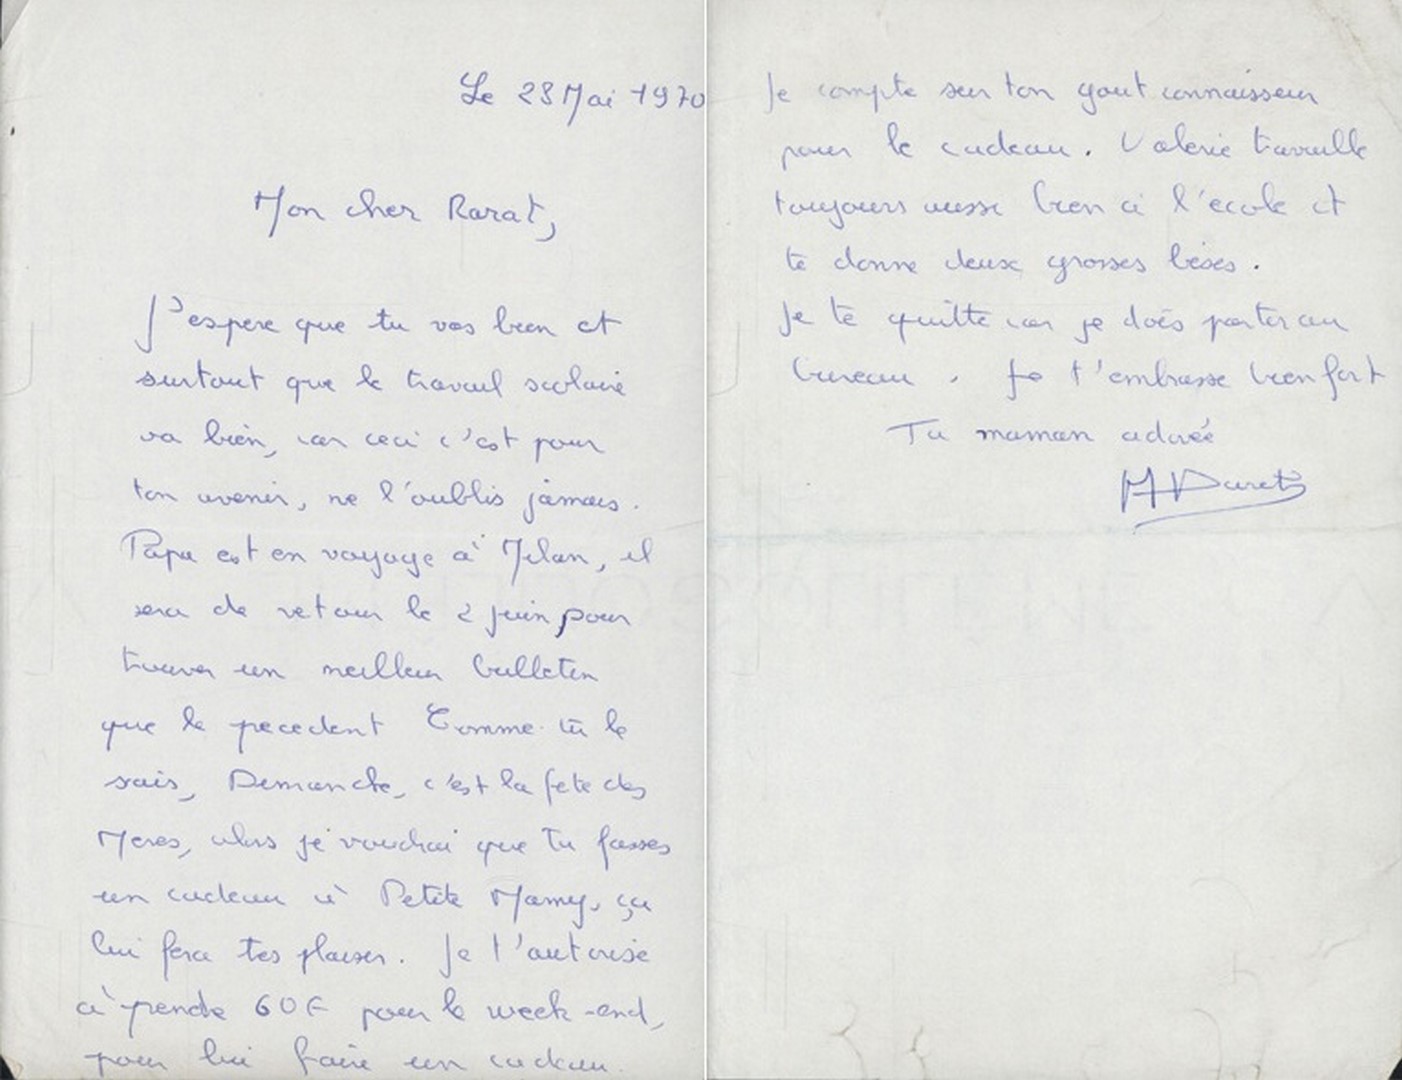 Le 28 Mai 1970
Mon cher Rarat,
J'espere que tu vas bien et
surtout que le travail scolaire
va bien, car ceci c'est pour
ton avenir, ne l'oublis jamais.
Papa est en voyage à Milan, il
sera de retour le 2 juin pour
trouver un meilleur bulletin
que le precedent Comme tu le
sais, Dimanche, c'est la fete des
Meres, alors je voudrai que tu fasses
un cadeau à Petite Mamy, ça
lui fera tes plaisir. Je t'autorise
à prende 60F pour le week-end,
pour lui faire un cadeau.
Je compte sur ton gout connaisseur
pour le cadeau. Valerie travaille
toujours aussi bien à l'école et
te donne deux grosses bises.
Je te quitte car je dois partir au
bureau. Je t'embrasse bien fort
Ta maman adorée